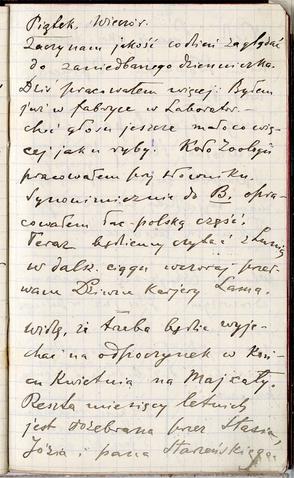 Piątek. Wieczór.
Zaczynam jakość codzień zaglądać
do zaniedbanego dzienniczka.
Dziś pracowałem więcej: Byłem
już w fabryce w Laborator.—
choć głosu jeszcze mało co wię-
cej jak u ryby. Koło Zoologji
pracowałem przy słowniku.
Synonimicznie do B. opra-
cowałem łac-polską część.
Teraz będziemy czytać z Lunią
w dalsz. ciągu wczoraj prze-
wane Dziwne Karjery Lama.
widzę, iż trzeba będzie wyje-
chać na odpoczynek w Koń-
cu Kwietnia na Maj cały.
Reszta miesięcy letnich
jest rozebrana przez Stasia,
Józia i pana Starzeńskiego.